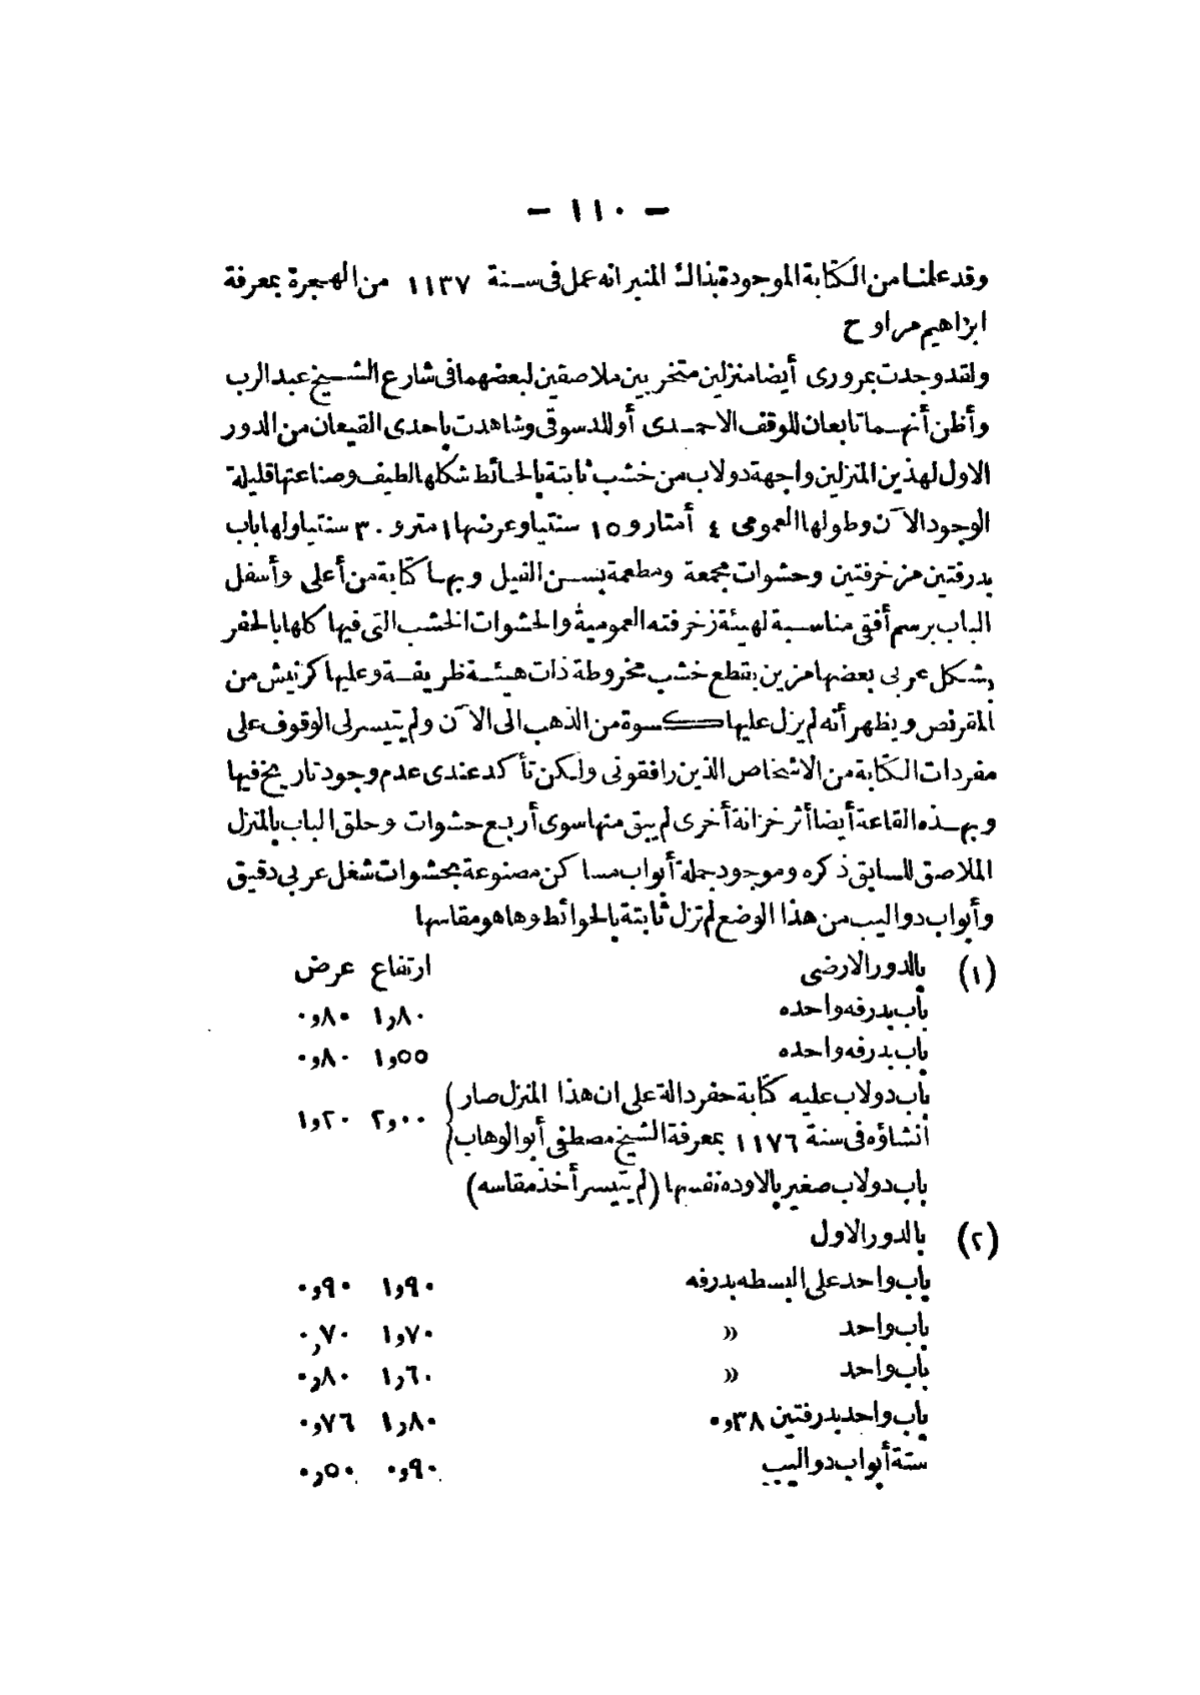 — ١١٠ —
وقد علمنا من الكتابة الموجودة بذاك المنبر انه عمل فى سنة ١١٣٧ من الهجرة بمعرفة
ابراهيم مراوح
ولقد وجدت بمرورى أيضا منزلين متخربين ملاصقين لبعضهما فى شارع الشيخ عبد الرب
وأظن أنهما تابعان للوقف الاحمدى أو للدسوقى وشاهدت باحدى القيعان من الدور
الاول لهذين المنزلين واجهة دولاب من خشب ثابتة بالحائط شكلها لطيف وصناعتها قليلة
الوجود الآن وطولها العمومى ٤ أمتار و ١٥ سنتيا وعرضها ١ متر و ٣٠ سنتيا ولها باب
بدرفتين مزخرفتين وحشوات مجمعة ومطعمة بسن الفيل وبها كتابة من أعلى وأسفل
الباب برسم أفقى مناسبة لهيئة زخرفته العمومية والحشوات الخشب التى فيها كلها بالحفر
بشكل عربى بعضها مزين بقطع خشب مخروطة ذات هيئة ظريفة وعليها كرنيش من
المقرنص ويظهر أنه لم يزل عليها كسوة من الذهب الى الآن ولم يتيسر لى الوقوف على
مفردات الكتابة من الاشخاص الذين رافقونى ولكن تأكد عندى عدم وجود تاريخ فيها
وبهذه القاعة أيضا أثر خزانة أخرى لم يبق منها سوى أربع حشوات وحلق الباب بالمنزل
الملاصق للسابق ذكره وموجود جملة أبواب مساكن مصنوعة بحشوات شغل عربى دقيق
وأبواب دواليب من هذا الوضع لم تزل ثابتة بالحوائط وها هو مقاسها
(١) بالدور الارضى ارتفاع عرض
باب بدرفه واحده ١٫٨٠ ٠٫٨٠
باب بدرفه واحده ١٫٥٥ ٠٫٨٠
باب دولاب عليه كتابة حفر دالة على ان هذا المنزل صار
انشاؤه فى سنة ١١٧٦ بمعرفة الشيخ مصطفى أبو الوهاب ٢٫٠٠ ١٫٢٠
باب دولاب صغير بالاوده نفسها (لم يتيسر أخذ مقاسه)
(٢) بالدور الاول
باب واحد على البسطه بدرفه ١٫٩٠ ٠٫٩٠
باب واحد » ١٫٧٠ ٠٫٧٠
باب واحد » ١٫٦٠ ٠٫٨٠
باب واحد بدرفتين ٠٫٣٨ ١٫٨٠ ٠٫٧٦
ستة أبواب دواليب ٠٫٩٠ ٠٫٥٠